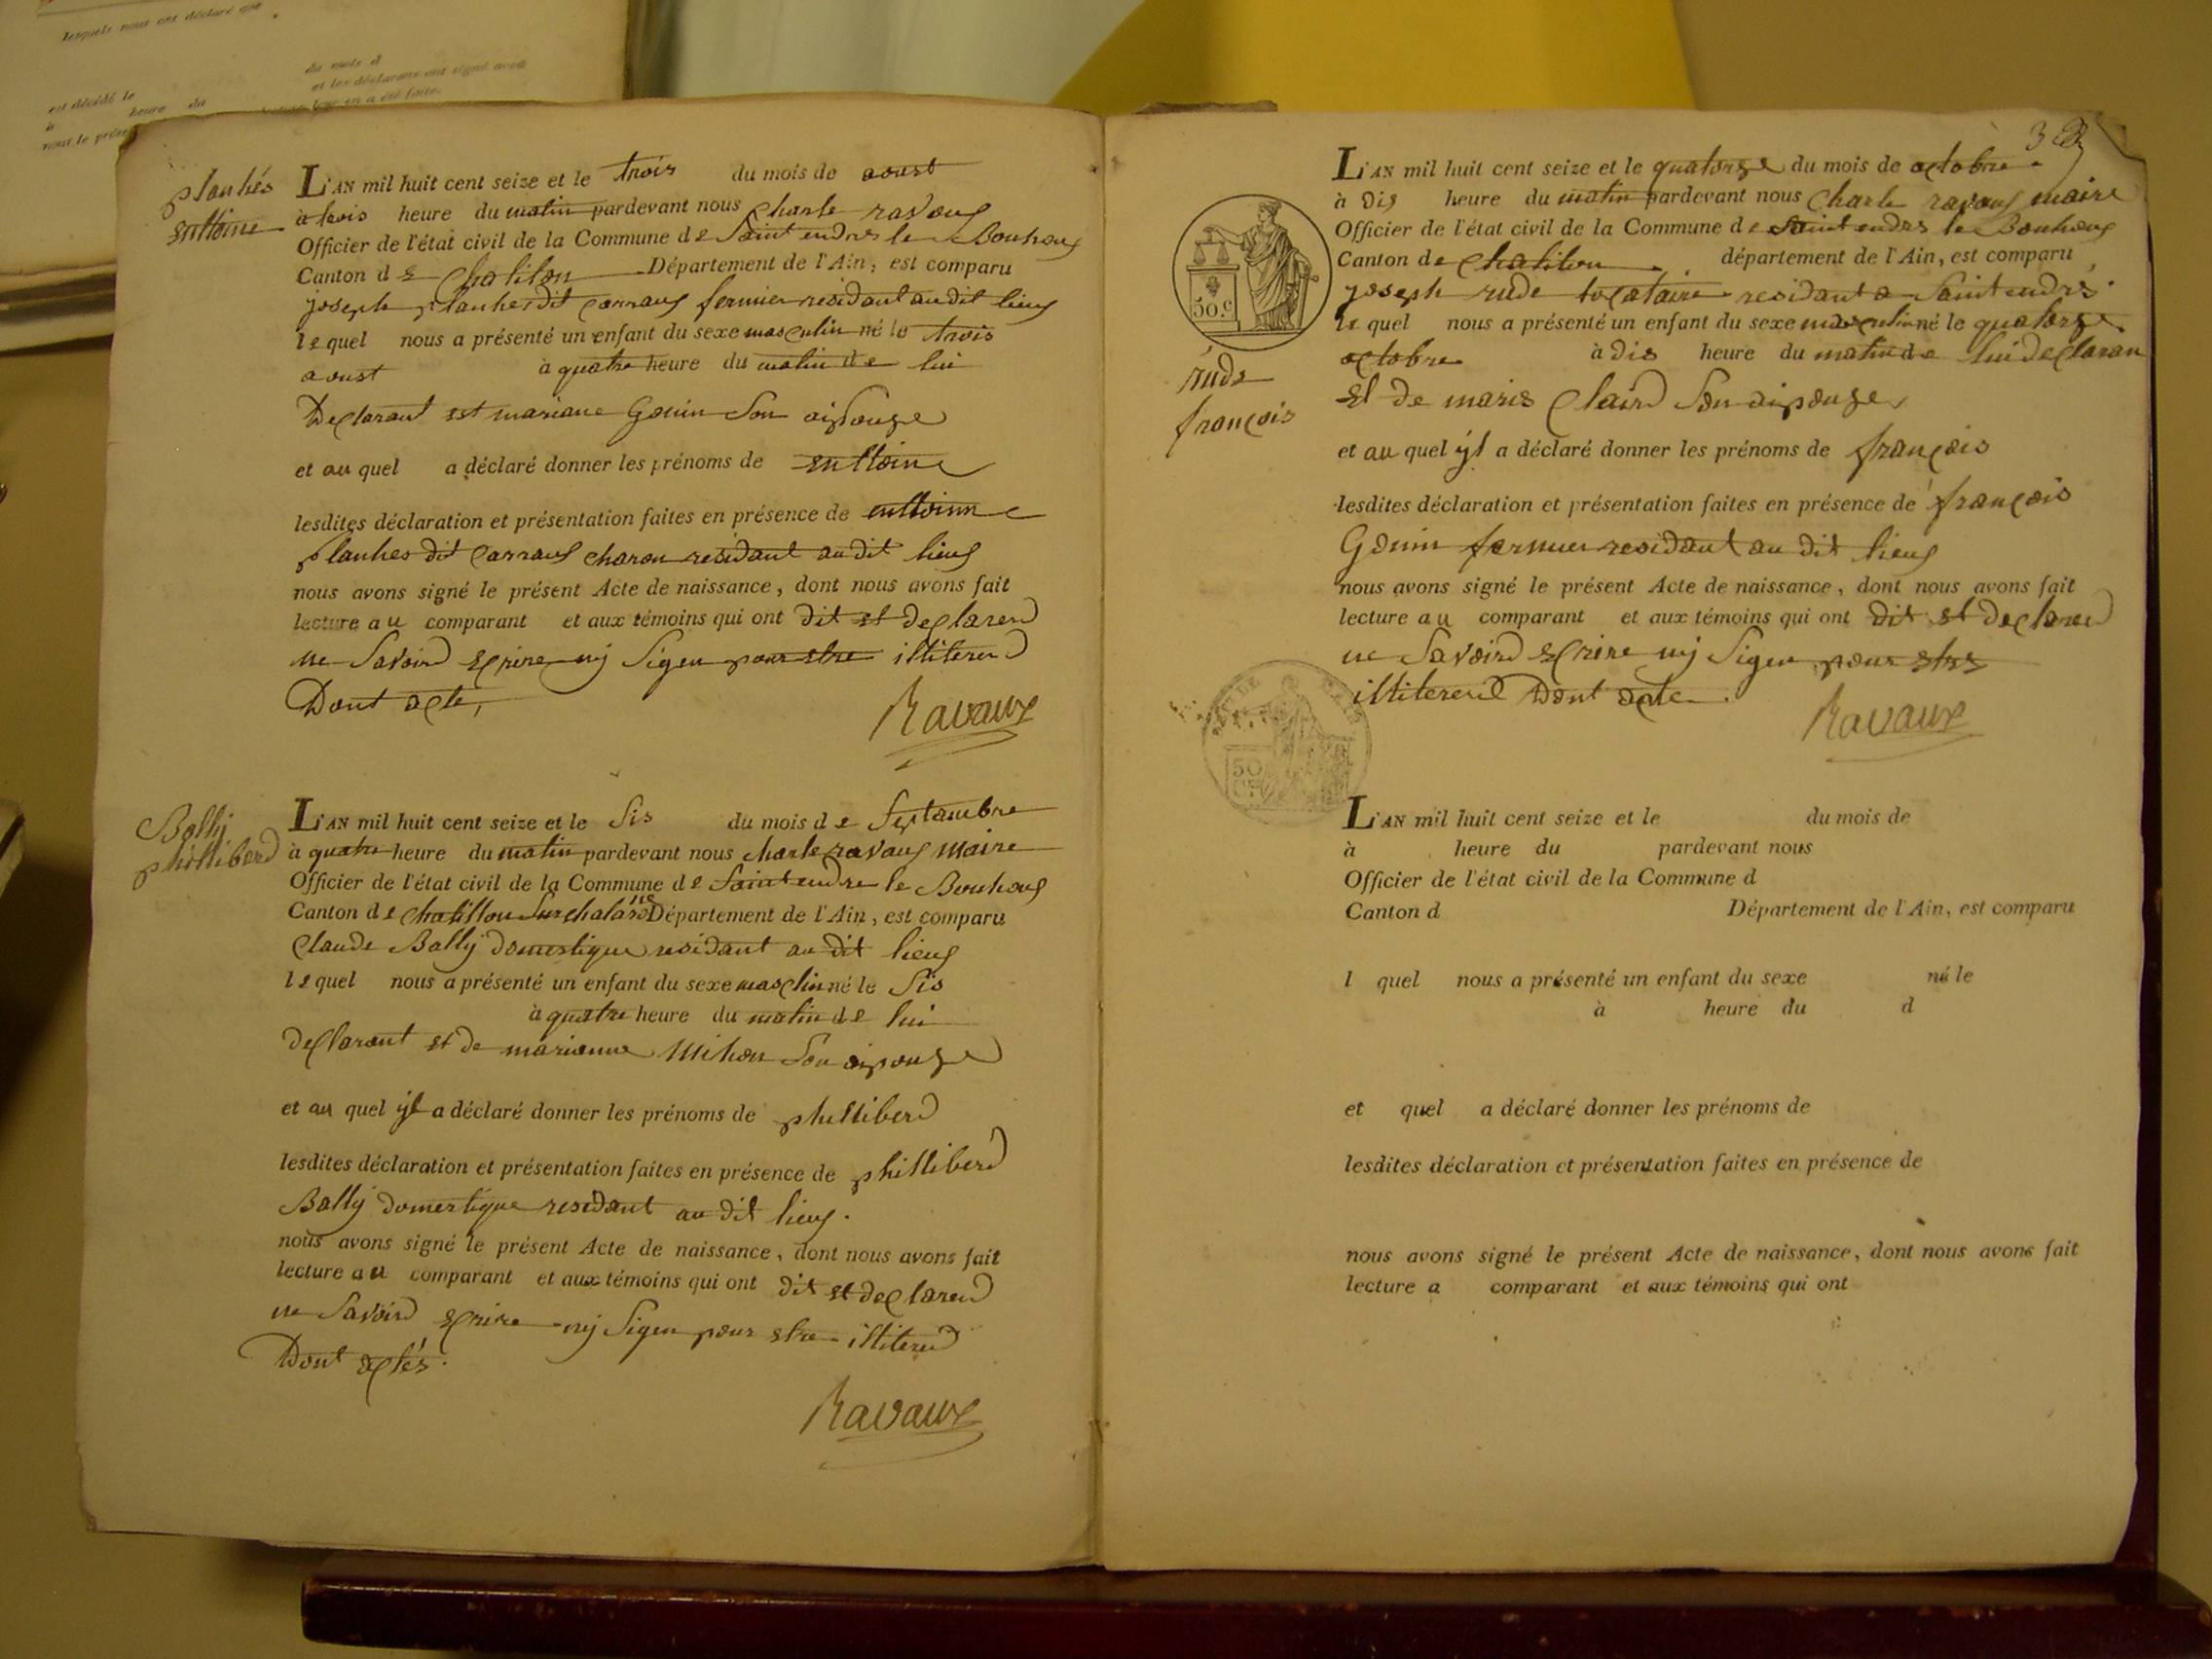 lesquels nous ont déclaré que
du mois d
et les déclarans ont signé avec
est décédé le
à heure du
leur en a été faite.
nous le prése
planhés
enttoine
L'AN mil huit cent seize et le trois du mois de aoust
à trois heure du matin pardevant nous Charle ravaux
Officier de l'état civil de la Commune de Saint endres le Bouhoux
Canton de Chatilon Département de l'Ain, est comparu
joseph planhes dit carraux fermier residant au dit lieux
lequel nous a présenté un enfant du sexe masculin né le trois
aoust à quatre heure du matin de lui
Declarant est mariane Gonin Son aipouze
et au quel a déclaré donner les prénoms de enttoine
lesdites déclaration et présentation faites en présence de enttoinne
planhes dit Carraux charon residant au dit lieux
nous avons signé le présent Acte de naissance, dont nous avons fait
lecture au comparant et aux témoins qui ont dit et declarerd
ne Savoird ecrire nij Signer pour etre illitererd
Dont acte,
Ravaux
Bolly
philliberd
L'AN mil huit cent seize et le Sis du mois de Septambre
à quatre heure du matin pardevant nous charle ravaux maire
Officier de l'état civil de la Commune de Saint endre le Bouhoux
Canton de Chatillon Sur chalarone Département de l'Ain, est comparu
Claude Bolly domestique residant au dit lieux
lequel nous a présenté un enfant du sexe masclin né le Sis
à quatre heure du matin de lui
declarant et de marianne Mihon Son aipouze
et au quel yl a déclaré donner les prénoms de philliberd
lesdites déclaration et présentation faites en présence de philliberd
Bolly domestique residant au dit lieux.
nous avons signé le présent Acte de naissance, dont nous avons fait
lecture au comparant et aux témoins qui ont dit et declarerd
ne Savoird ecrire nij Signer pour etre illitererd
Dont actés.
Ravaux
3
L'AN mil huit cent seize et le quatorze du mois de octobre
à dis heure du matin pardevant nous Charle ravaux maire
Officier de l'état civil de la Commune de Saint endres le Bouhoux
Canton de Chatilon département de l'Ain, est comparu
joseph rude locataire residant a Saint endrés
le quel nous a présenté un enfant du sexe masculin né le quatorze
octobre à dis heure du matin de lui declaran
et de marie Claird Son aipouze
et au quel yl a déclaré donner les prénoms de françois
lesdites déclaration et présentation faites en présence de françois
Gonin fermier residant au dit lieux
nous avons signé le présent Acte de naissance, dont nous avons fait
lecture au comparant et aux témoins qui ont dit et declarerd
ne Savoird ecrire nij Signer pour etre
illitererd Dont acte.
Ravaux
50.c
rude
françois
50
L'AN mil huit cent seize et le du mois de
à heure du pardevant nous
Officier de l'état civil de la Commune d
Canton d Département de l'Ain, est comparu
l quel nous a présenté un enfant du sexe né le
à heure du d
et quel a déclaré donner les prénoms de
lesdites déclaration et présentation faites en présence de
nous avons signé le présent Acte de naissance, dont nous avons fait
lecture a comparant et aux témoins qui ont